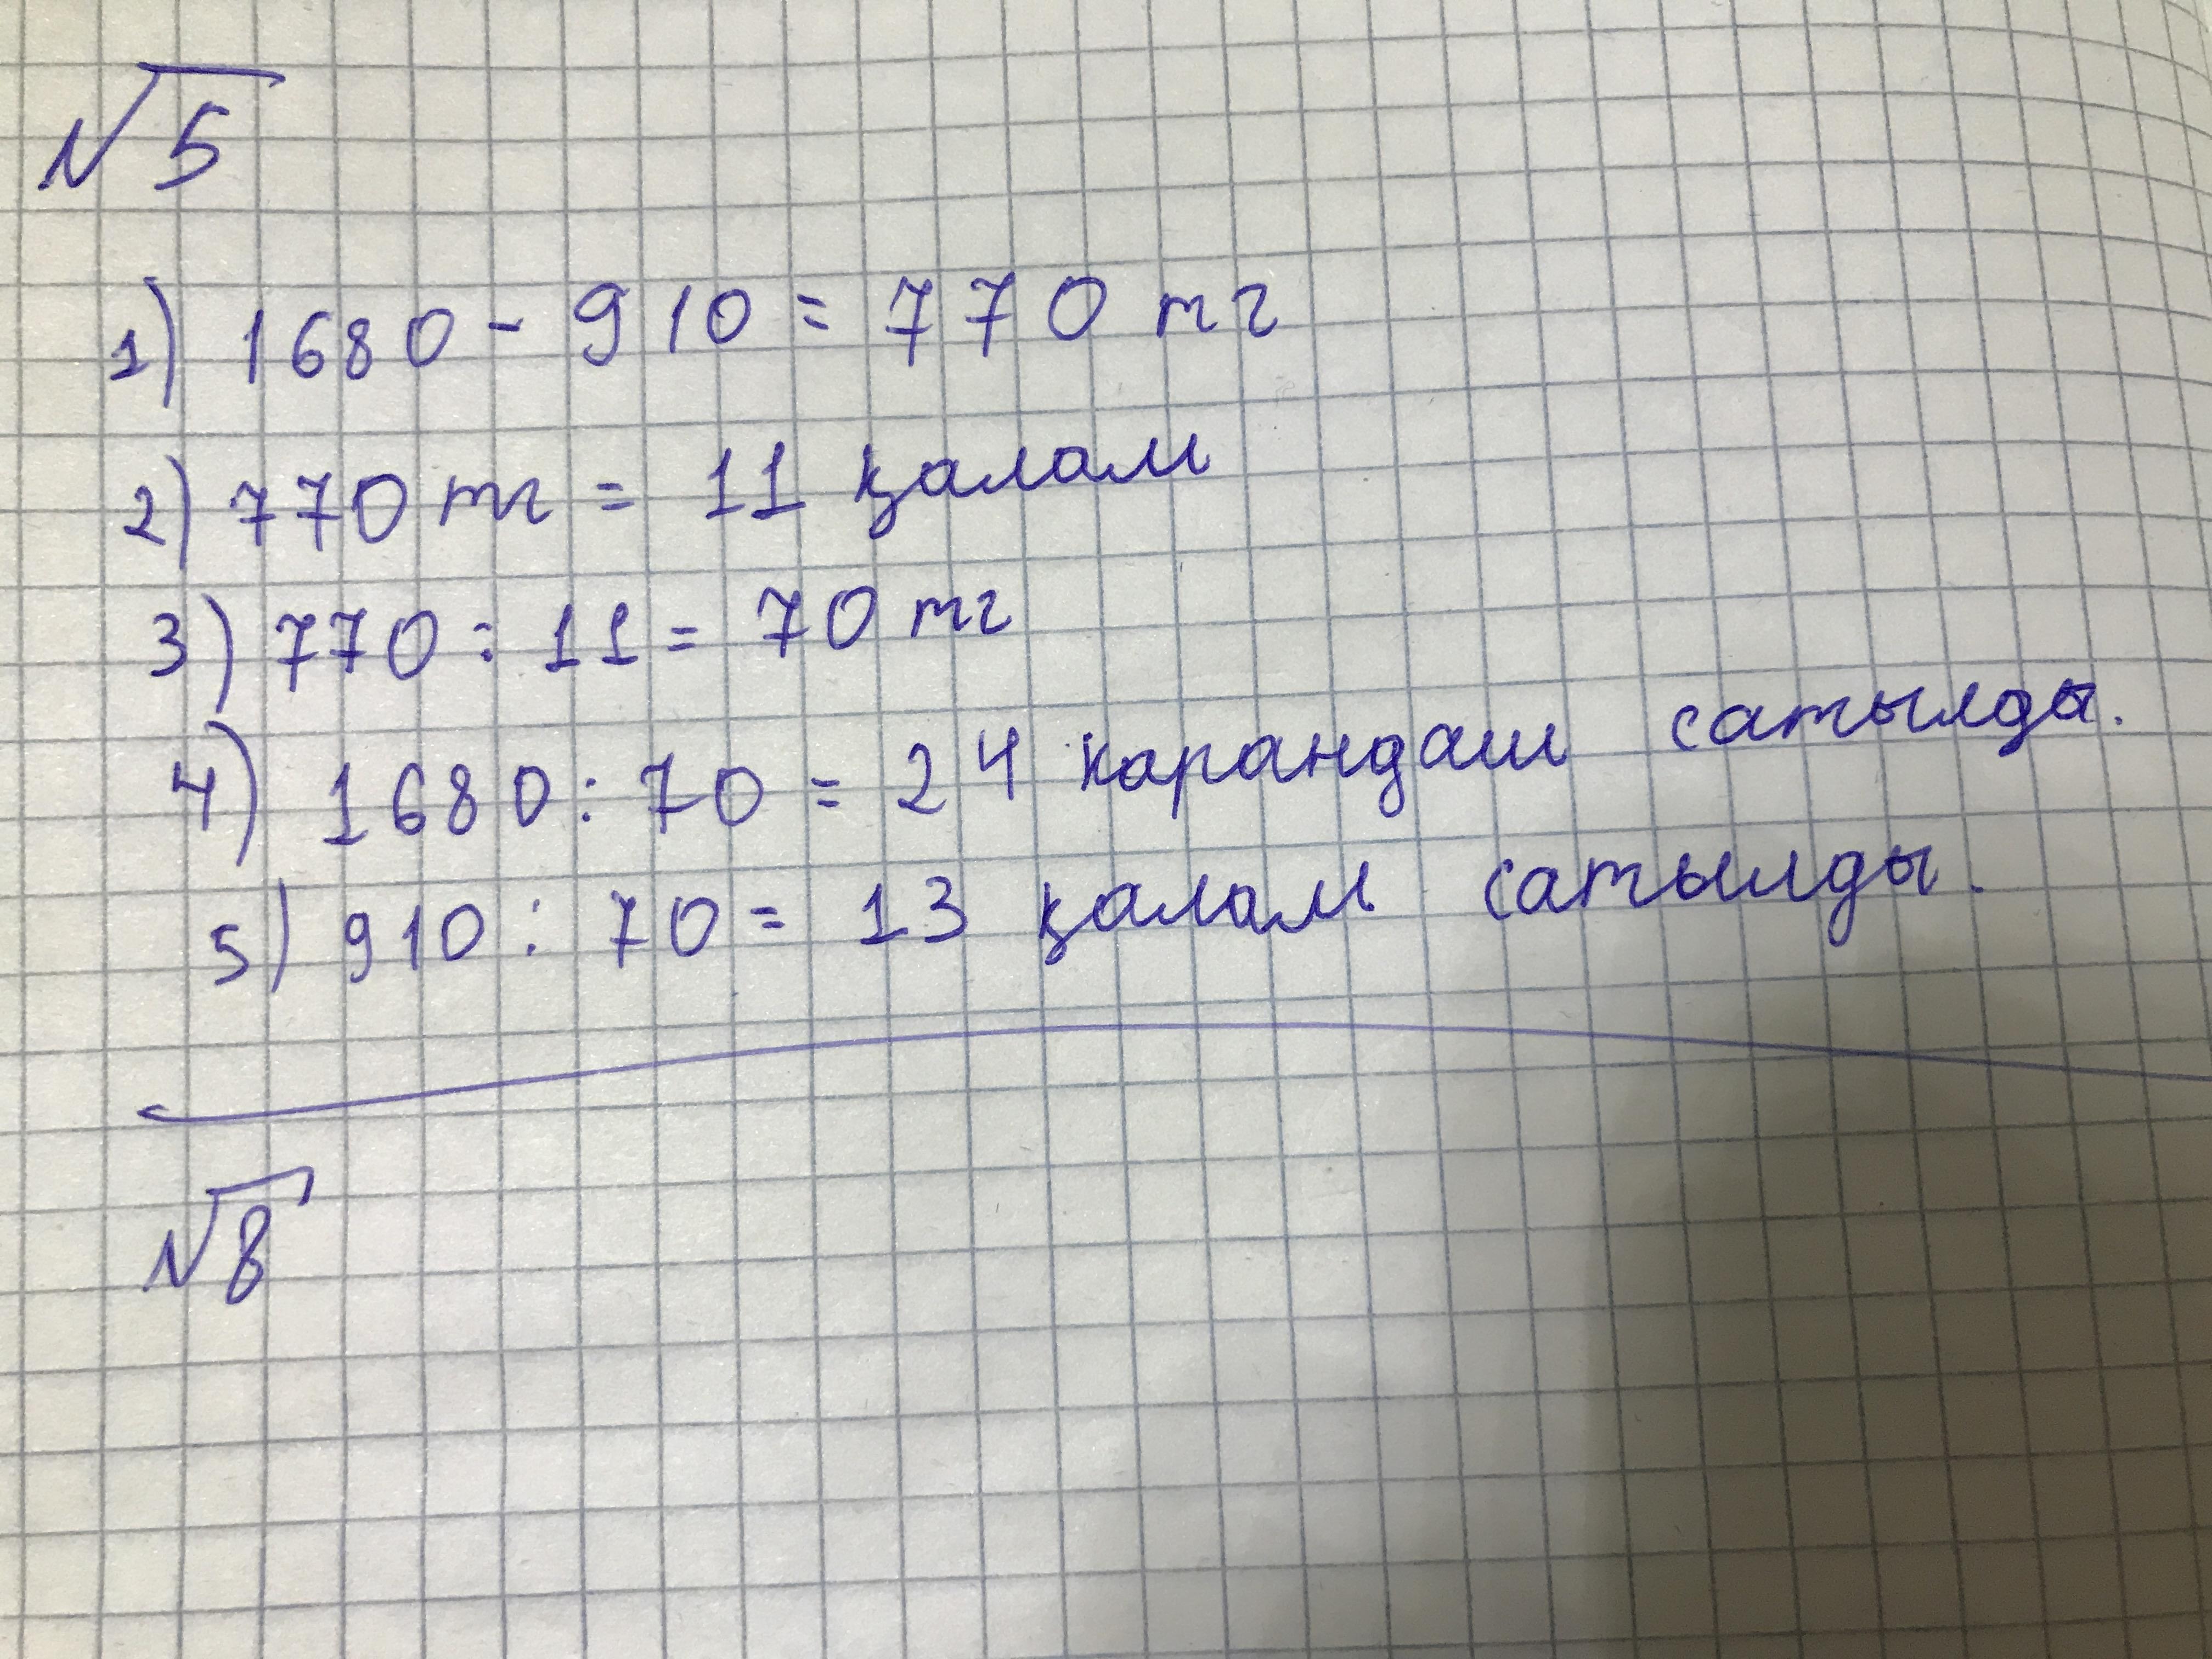 √5
1) 1680 - 910 = 770 тг
2) 770 тг = 11 қалам
3) 770 : 11 = 70 тг
4) 1680 : 70 = 24 карандаш сатылды.
5) 910 : 70 = 13 қалам сатылды.
√8